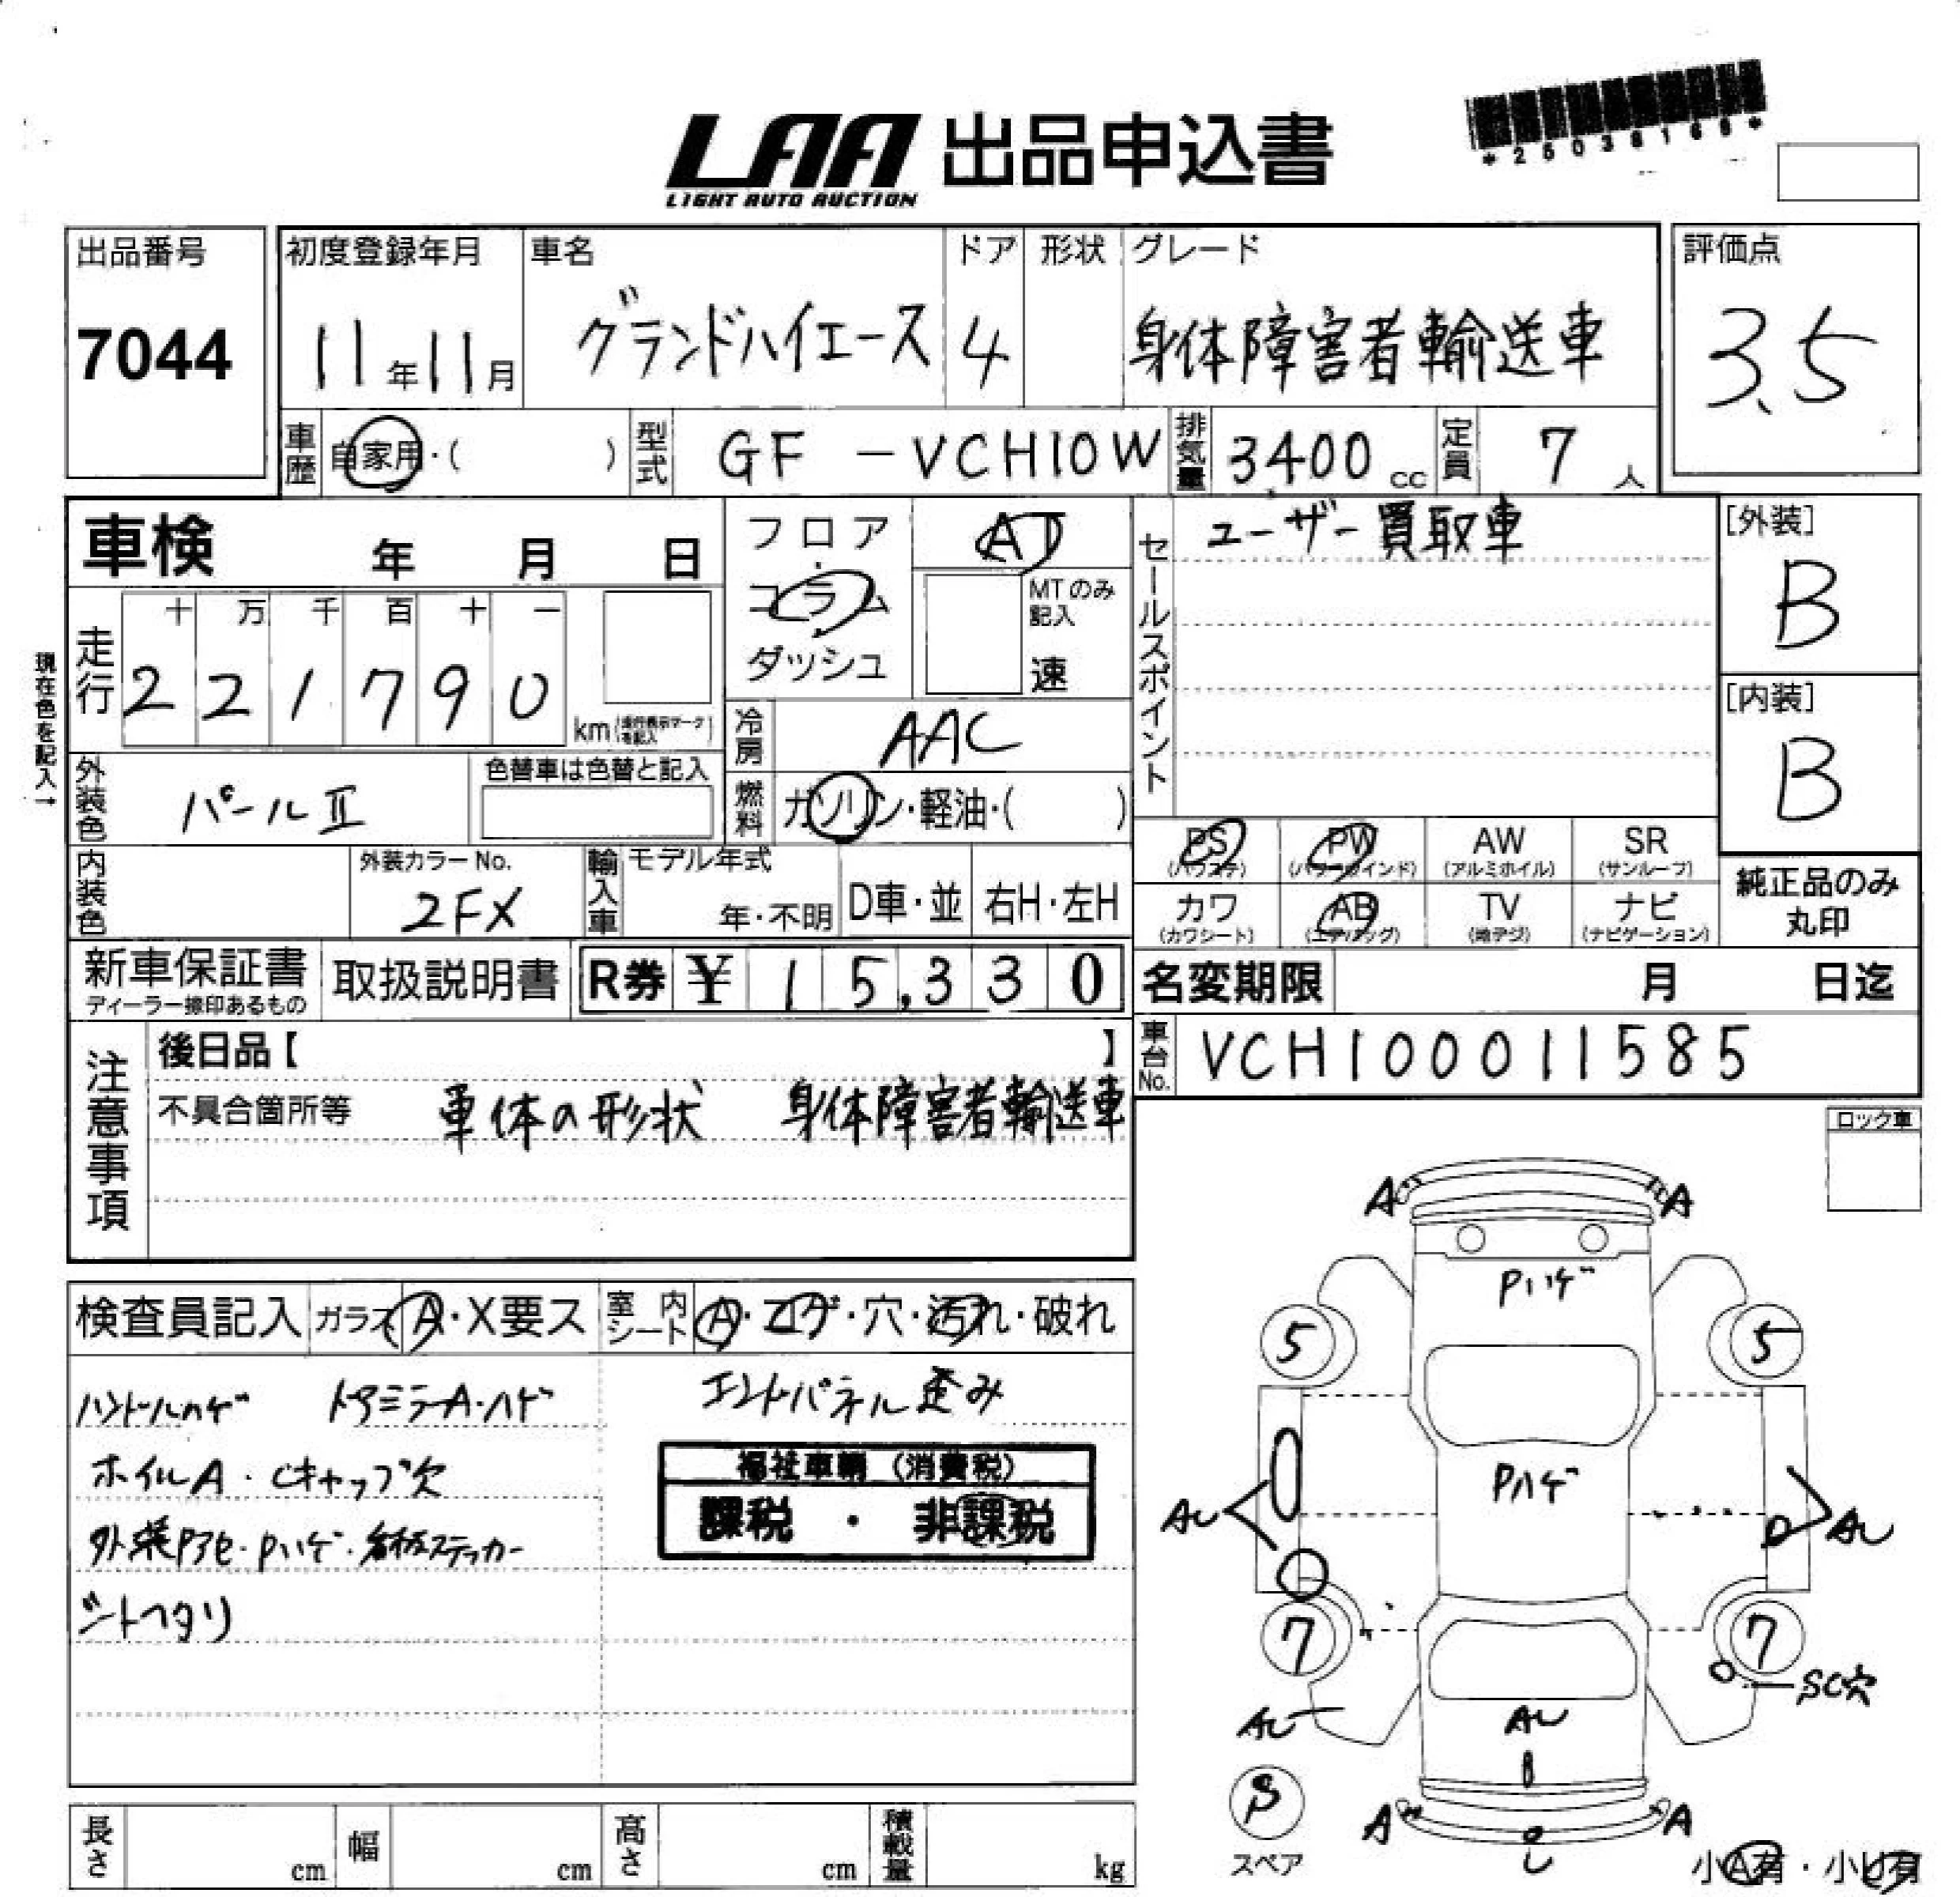 LAA 出品申込書
LIGHT AUTO AUCTION
*25038166*
出品番号 初度登録年月 車名 ドア 形状 グレード 評価点
7044 11年11月 グランドハイエース 4 身体障害者輸送車 3.5
車歴 自家用・( ) 型式 GF-VCH10W 排気量 3400cc 定員 7人
車検 年 月 日
フロア・コラム・ダッシュ
AT
MTのみ記入
速
セールスポイント ユーザー買取車
[外装]
B
[内装]
B
現在色を記入→
走行 十 万 千 百 十 一
2 2 1 7 9 0 km (走行表示マークを記入)
冷房 AAC
外装色 パールⅡ 色替車は色替と記入
燃料 ガソリン・軽油・( )
内装色 外装カラーNo. 2FX
輸入車 モデル年式 年・不明 D車・並 右H・左H
PS (パワステ) PW (パワーウインド) AW (アルミホイル) SR (サンルーフ)
カワ (カワシート) AB (エアバッグ) TV (地デジ) ナビ (ナビゲーション)
純正品のみ丸印
新車保証書 取扱説明書 R券 ¥ 15,330
ディーラー捺印あるもの
名変期限 月 日迄
車台No. VCH100011585
注意事項
後日品【 】
不具合箇所等 車体の形状 身体障害者輸送車
ロック車
検査員記入 ガラス A・X要ス 室内シート A・コゲ・穴・汚れ・破れ
ハンドルハゲ ドアミラーA・ハゲ エンドパネル歪み
ホイルA・Cキャップ欠
外装Pアセ・Pハゲ・看板ステッカー
シートヘタリ
福祉車輌 (消費税)
課税 ・ 非課税
A A
Pハゲ
5 5
Pハゲ
AU AU
7 7
SC穴
AU AU
B
S
スペア
A A
U
小A有・小U有
長さ cm 幅 cm 高さ cm 積載量 kg